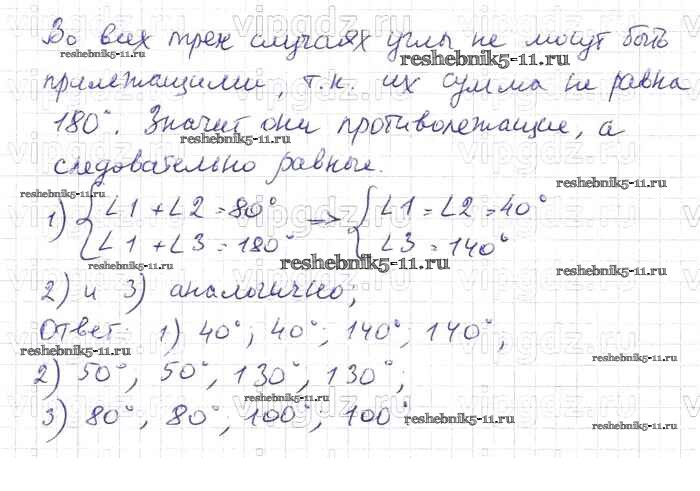 Во всех трех случаях углы не могут быть
прилежащими, т.к. их сумма не равна
180°. Значит они противолежащие, а
следовательно равные.
1) { ∠1 + ∠2 = 80° => { ∠1 = ∠2 = 40°
∠1 + ∠3 = 180° ∠3 = 140°
2) и 3) аналогично;
Ответ: 1) 40°; 40°; 140°; 140°,
2) 50°, 50°, 130°, 130°;
3) 80°, 80°, 100°, 100°
reshebnik5-11.ru
vipgdz.ru